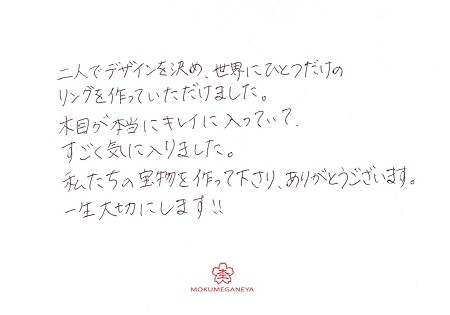 二人でデザインを決め、世界にひとつだけの
リングを作っていただけました。
木目が本当にキレイに入っていて、
すごく気に入りました。
私たちの宝物を作って下さり、ありがとうございます。
一生大切にします!!
MOKUMEGANEYA